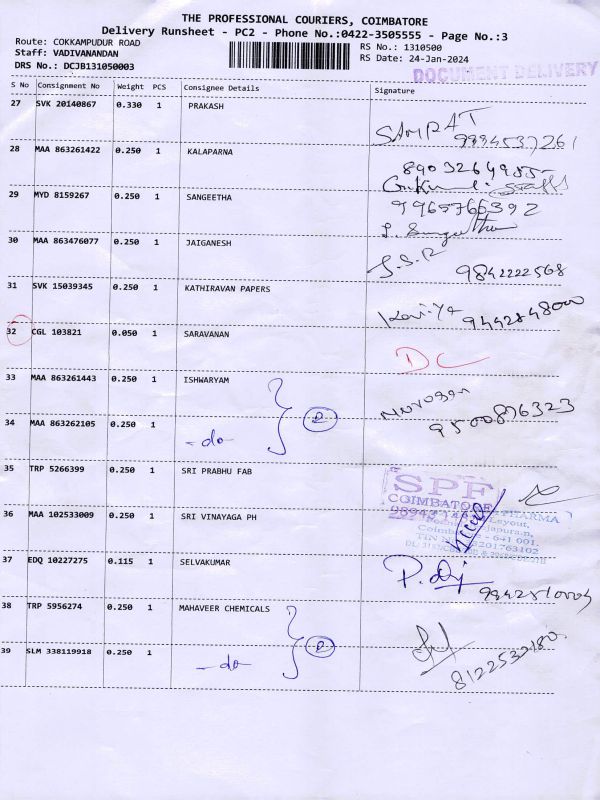 THE PROFESSIONAL COURIERS, COIMBATORE
Delivery Runsheet - PC2 - Phone No.:0422-3505555 - Page No.:3
Route: COKKAMPUDUR ROAD
Staff: VADIVANANDAN
DRS No.: DCJB131050003
RS No.: 1310500
RS Date: 24-Jan-2024
DOCUMENT DELIVERY
S No Consignment No Weight PCS Consignee Details Signature
27 SVK 20140867 0.330 1 PRAKASH
SAMPAT
9994537261
28 MAA 863261422 0.250 1 KALAPARNA
8903264985
29 MYD 8159267 0.250 1 SANGEETHA
9965766392
30 MAA 863476077 0.250 1 JAIGANESH
J.S.R
9842222568
31 SVK 15039345 0.250 1 KATHIRAVAN PAPERS
9442848000
32 CGL 103821 0.050 1 SARAVANAN
DC
33 MAA 863261443 0.250 1 ISHWARYAM
2
34 MAA 863262105 0.250 1 -do-
9500876323
35 TRP 5266399 0.250 1 SRI PRABHU FAB
SPF
COIMBATORE
36 MAA 102533009 0.250 1 SRI VINAYAGA PH
PHARMA
Layout,
641 001.
37 EDQ 10227275 0.115 1 SELVAKUMAR
38 TRP 5956274 0.250 1 MAHAVEER CHEMICALS
2
39 SLM 338119918 0.250 1 -do-
8122532180